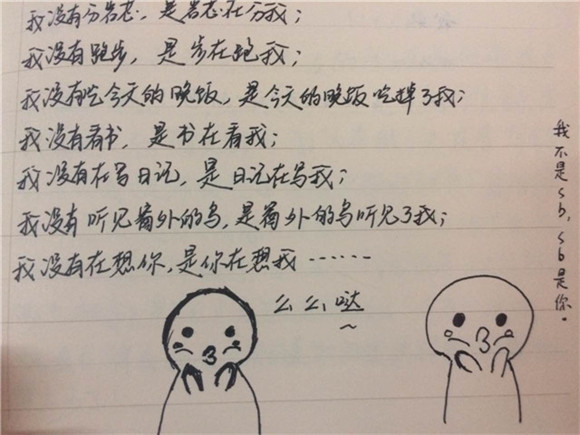 我没有分，是在分我；
我没有跑步，是步在跑我；
我没有吃今天的晚饭，是今天的晚饭吃掉了我；
我没有看书，是书在看我；
我没有在写日记，是日记在写我；
我没有听见窗外的鸟，是窗外的鸟听见了我；
我没有在想你，是你在想我……
么么哒
~
我不是sb，sb是你。